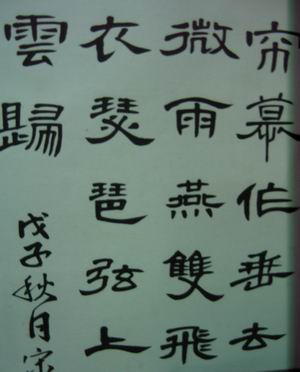 帘幕低垂去
微雨燕雙飛
衣琵琶弦上
雲歸
戊子秋月